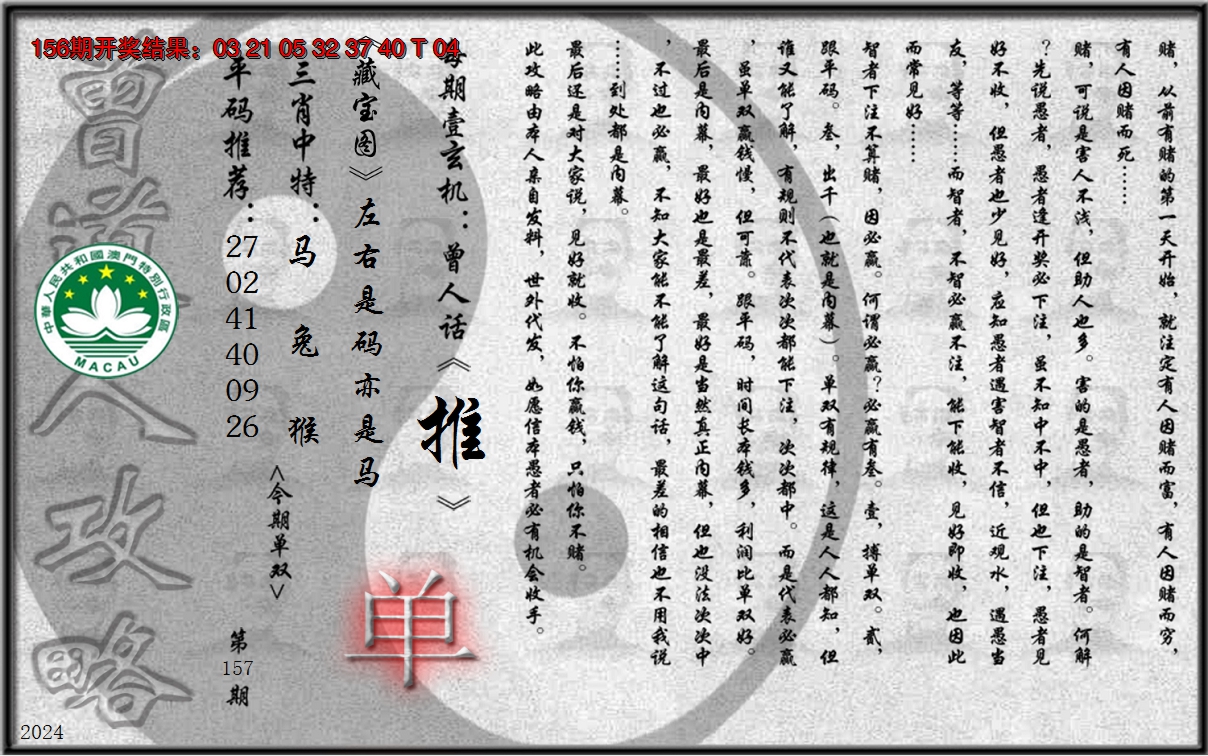 156期开奖结果：03 21 05 32 37 40 T 04
赌，从前有赌的第一天开始，就注定有人因赌而富，有人因赌而穷，
有人因赌而死……
赌，可说是害人不浅，但助人也多。害的是愚者，助的是智者。何解
？先说愚者，愚者逢开奖必下注，虽不知中不中，但也下注，愚者见
好不收，但愚者也少见好，应知愚者遇害智者不信，近观水，遇愚当
友，等等……而智者，不智必赢不注，能下能收，见好即收，也因此
而常见好……
智者下注不算赌，因必赢。何谓必赢？必赢有叁。壹，搏单双。贰，
跟平码。叁，出千（也就是内幕）。单双有规律，这是人人都知，但
谁又能了解，有规则不代表次次都能下注，次次都中。而是代表必赢
，虽单双赢钱慢，但可靠。跟平码，时间长本钱多，利润比单双好。
最后是内幕，最好也是最差，最好是当然真正内幕，但也没法次次中
，不过也必赢，不知大家能不能了解这句话，最差的相信也不用我说
……到处都是内幕。
最后还是对大家说，见好就收。不怕你赢钱，只怕你不赌。
此攻略由本人亲自发料，世外代发，如愿信本愚者必有机会收手。
每期壹玄机：曾人话《推》
《藏宝图》左右是码亦是马
单
三肖中特：马 兔 猴
<今期单双>
平码推荐：27 02 41 40 09 26
第157期
曾道人攻略
中華人民共和國澳門特別行政區
MACAU
2024